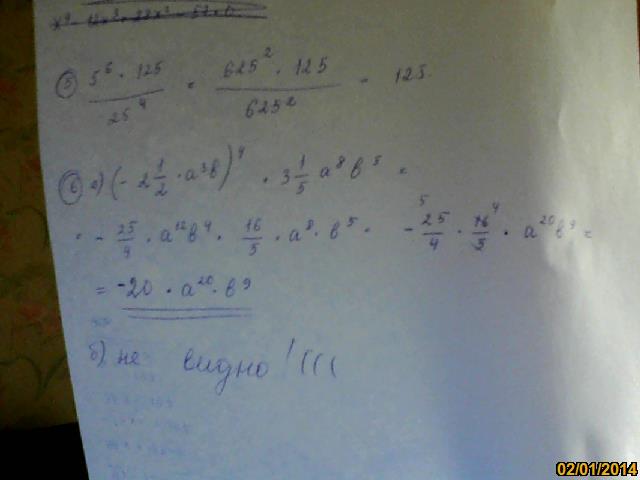 ⑤ 5⁶ · 125 / 25⁴ = 625² · 125 / 625² = 125.
⑥ а) (- 2 1/2 · a³в)⁴ · 3 1/5 a⁸в⁵ =
= - 25/4 · a¹²в⁴ · 16/5 · a⁸ · в⁵ = - 25/4 · 16/5 · a²⁰в⁹ =
= -20 · a²⁰ · в⁹
б) не видно! (((
02/01/2014